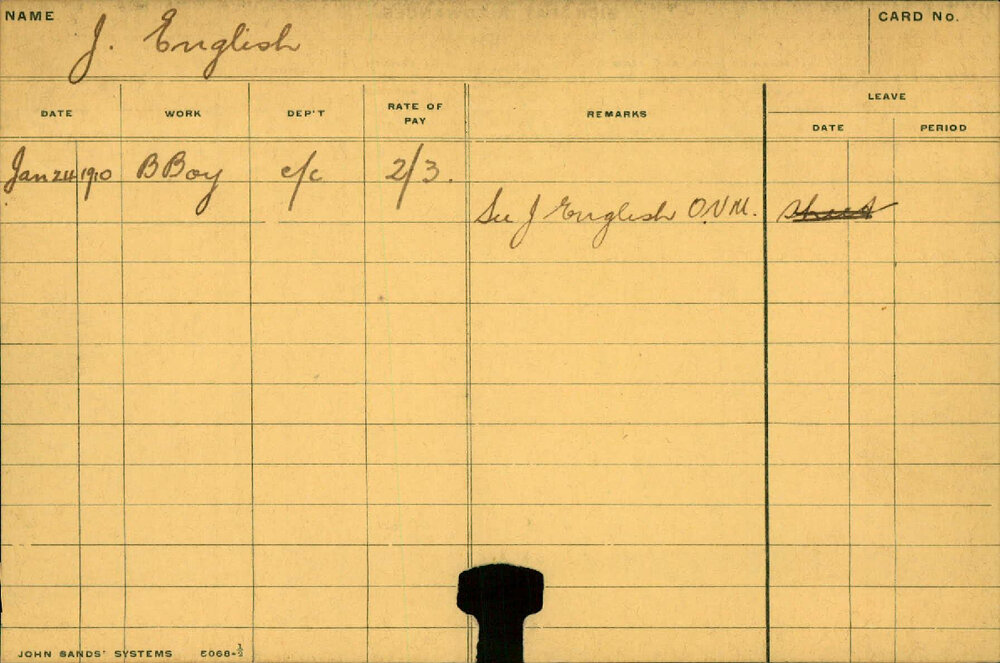 NAME J. English CARD No.
LEAVE
DATE WORK DEP'T RATE OF PAY REMARKS DATE PERIOD
Jan 24 1910 B Boy c/c 2/3.
See J English O.V.M.
JOHN SANDS' SYSTEMS 5068-½